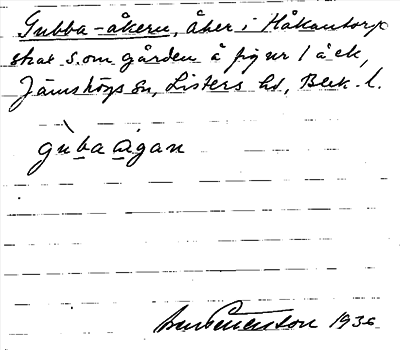 Gubba-åkern, åker i Håkantorp
strax s.om gården å fig nr 1 å ek,
Jämshögs sn, Listers hd, Blek. l.
gùba ågan
1936